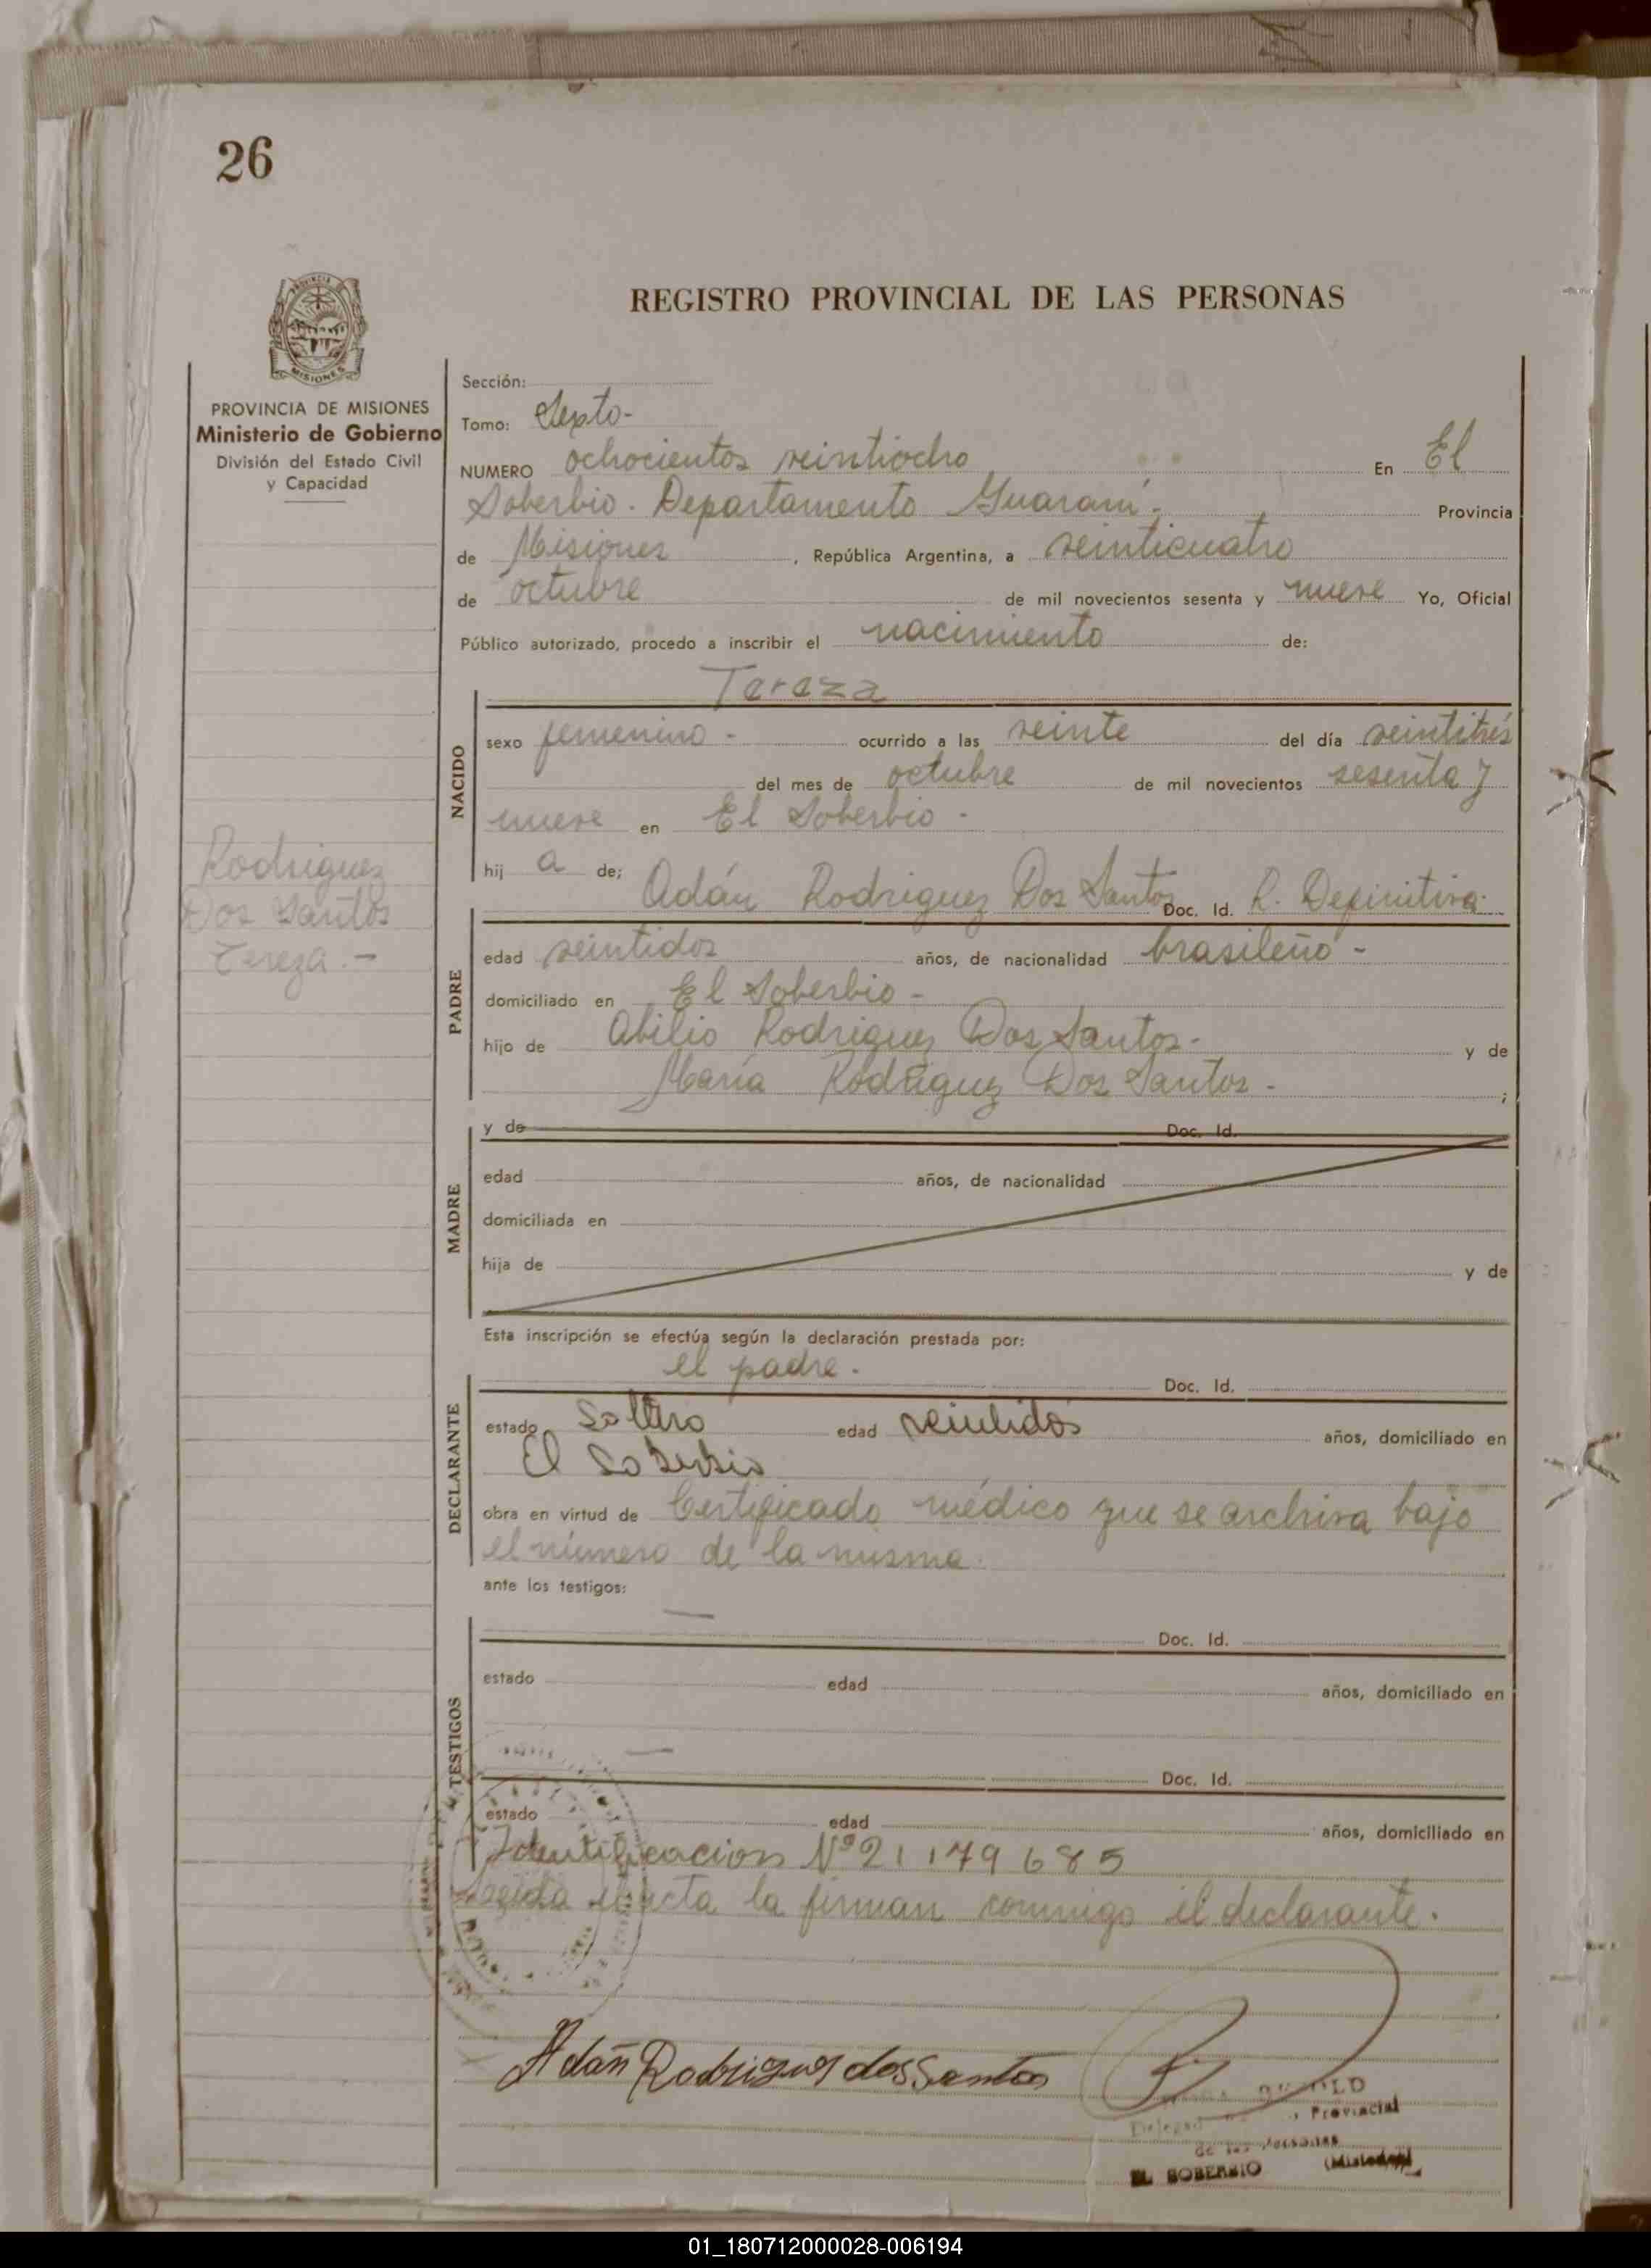 26
REGISTRO PROVINCIAL DE LAS PERSONAS
MISIONES
PROVINCIA DE MISIONES
Ministerio de Gobierno
División del Estado Civil
y Capacidad
Rodriguez
Dos Santos
Tereza.-
Sección:
Tomo: Sexto-
NUMERO ochocientos veintiocho En El
Soberbio. Departamento Guaraní- Provincia
de Misiones, República Argentina, a veinticuatro
de octubre de mil novecientos sesenta y nueve Yo, Oficial
Público autorizado, procedo a inscribir el nacimiento de:
Tereza
NACIDO
sexo femenino- ocurrido a las veinte del día veintitrés
del mes de octubre de mil novecientos sesenta y
nueve en El Soberbio-
hij a de;
Adán Rodriguez Dos Santos Doc. Id. R. Definitiva-
PADRE
edad veintidos años, de nacionalidad brasileño-
domiciliado en El Soberbio-
hijo de Abilio Rodriguez Dos Santos- y de
María Rodriguez Dos Santos- ;
MADRE
y de Doc. Id.
edad años, de nacionalidad
domiciliada en
hija de y de
Esta inscripción se efectúa según la declaración prestada por:
el padre. Doc. Id.
DECLARANTE
estado soltero edad veintidos años, domiciliado en
El Soberbio
obra en virtud de Certificado médico que se archiva bajo
el número de la misma.
ante los testigos:
— Doc. Id.
TESTIGOS
estado edad años, domiciliado en
— Doc. Id.
estado edad años, domiciliado en
Identificacion Nº 21179685
Leida el acta la firman conmigo el declarante.
Adán Rodriguez dos Santos
Provincial
de las Personas
EL SOBERBIO (Misiones)
01_180712000028-006194